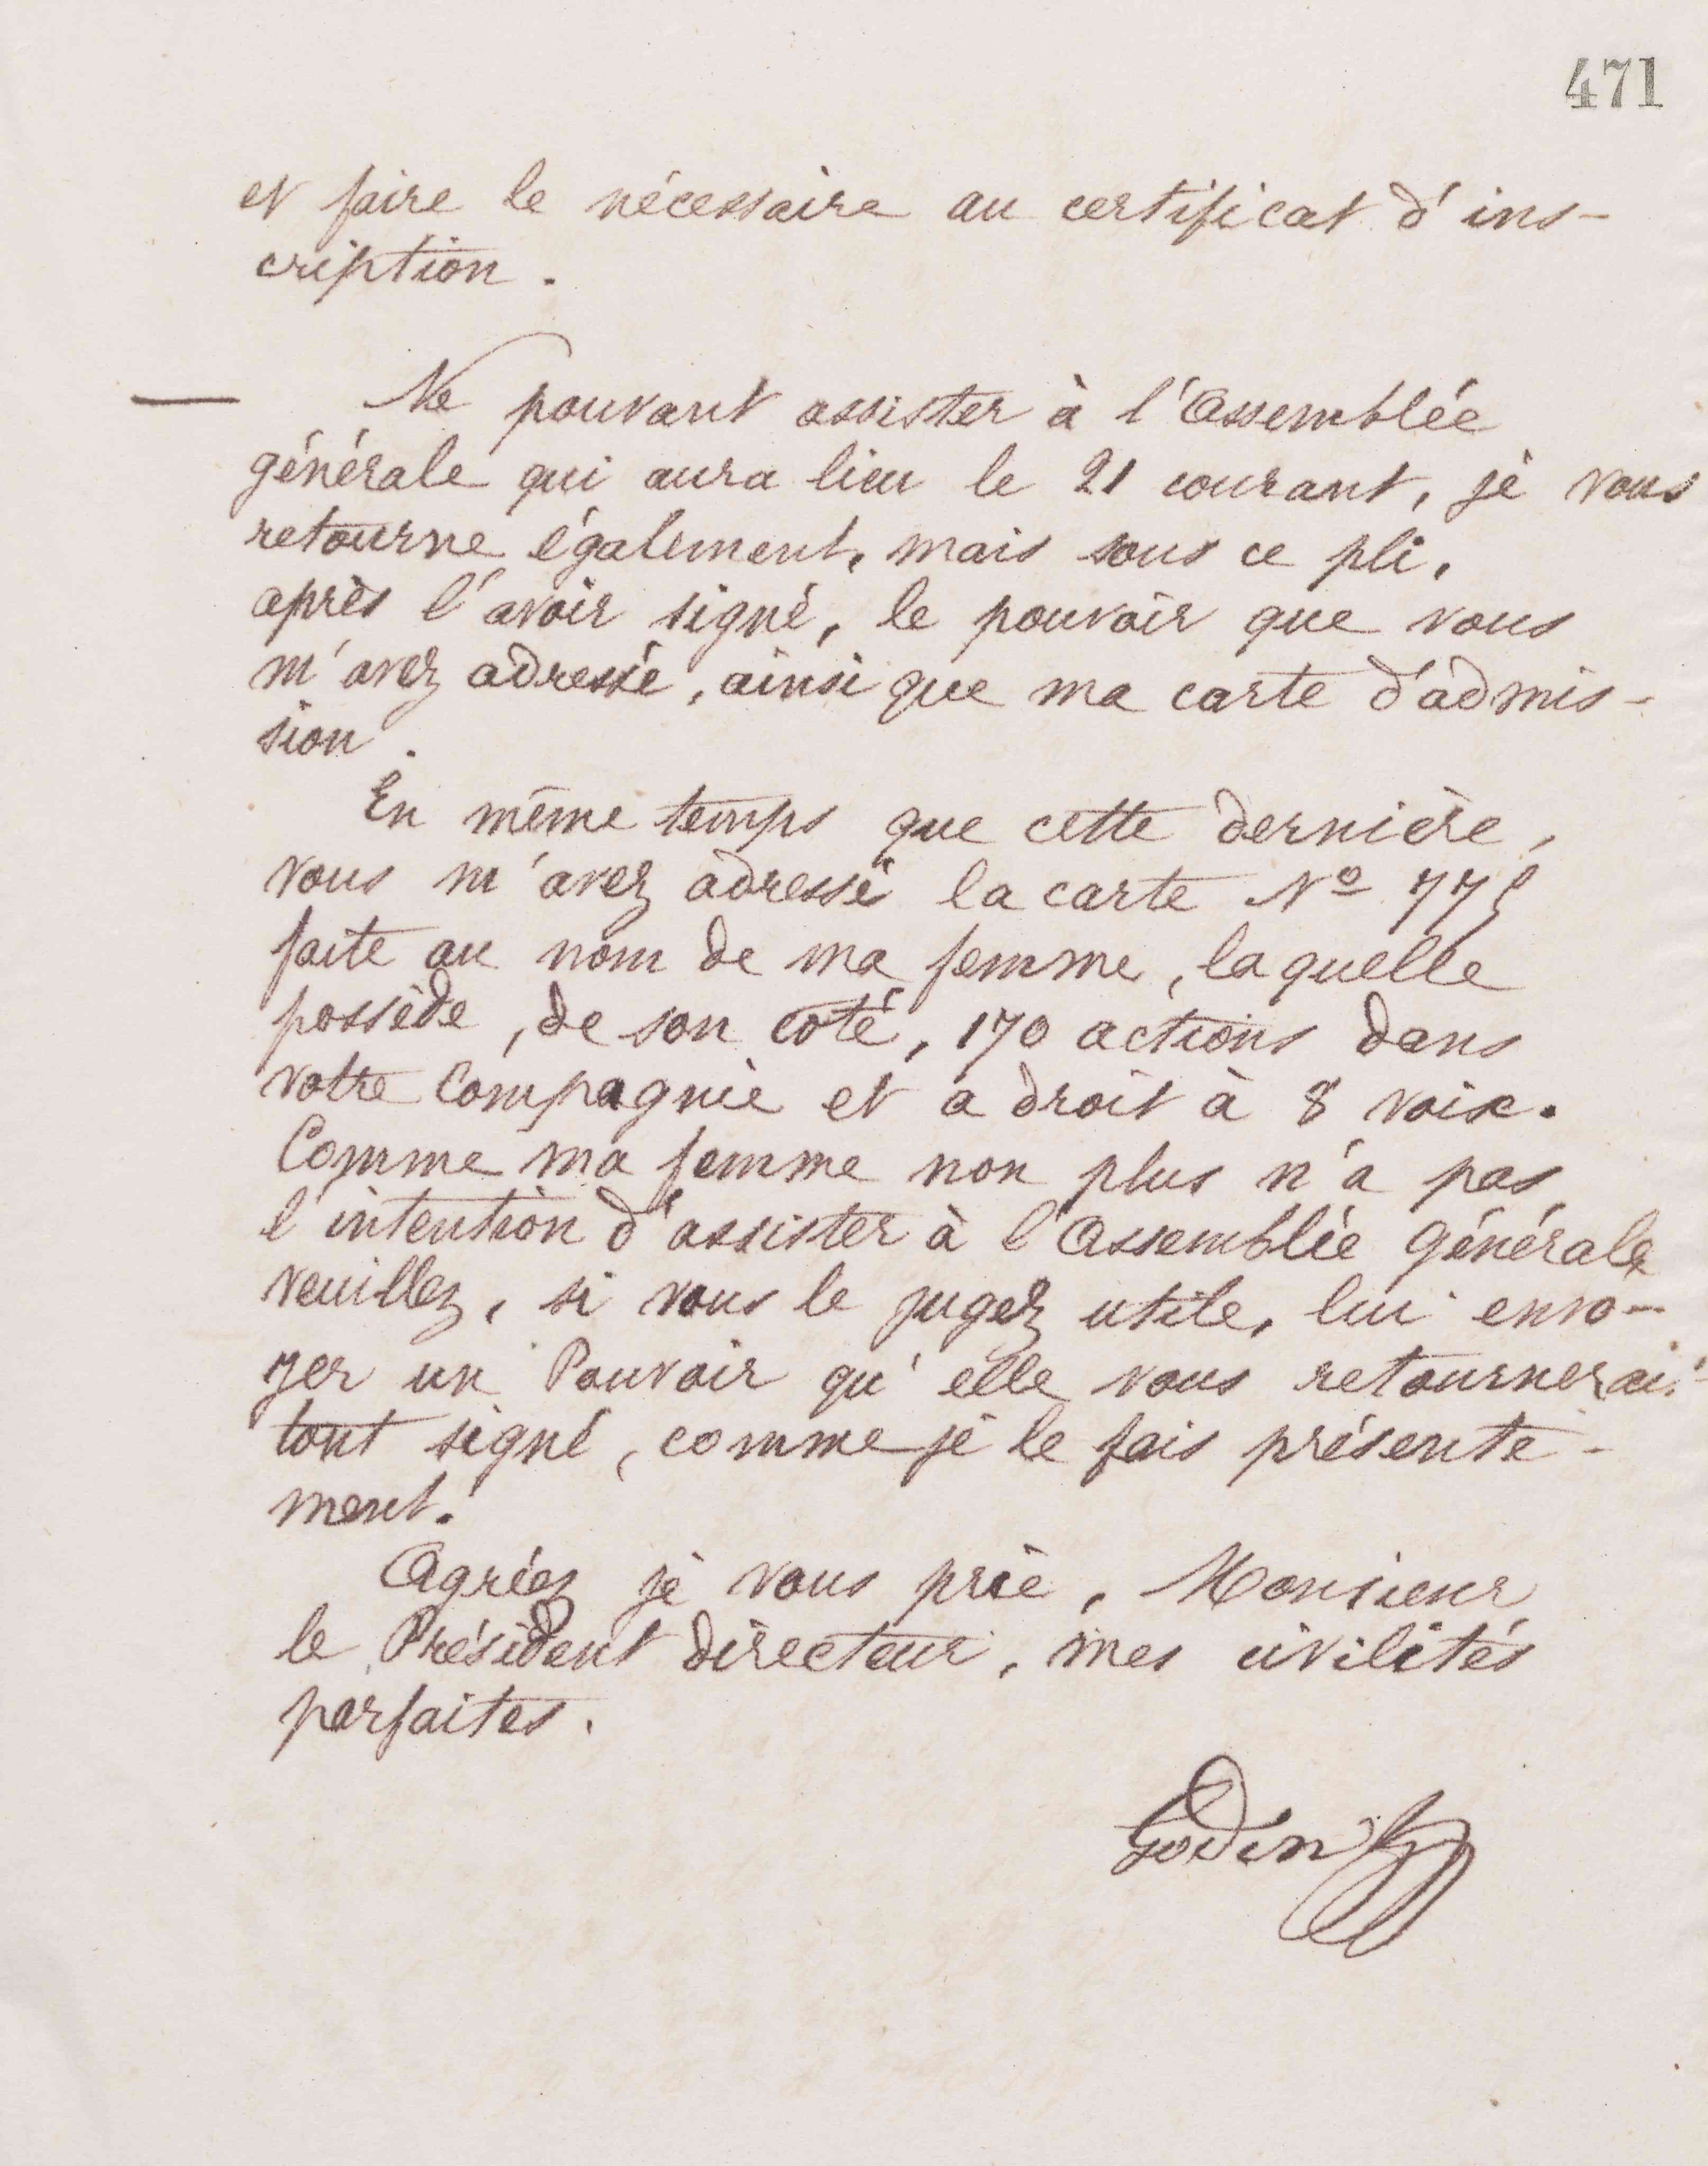 471
et faire le nécessaire au certificat d'ins-
cription.
Ne pouvant assister à l'Assemblée
générale qui aura lieu le 21 courant, je vous
retourne également, mais sous ce pli,
après l'avoir signé, le pouvoir que vous
m'avez adressé, ainsi que ma carte d'admis-
sion.
En même temps que cette dernière,
vous m'avez adressé la carte Nº 775
faite au nom de ma femme, laquelle
possède, de son côté, 170 actions dans
votre Compagnie et a droit à 8 voix.
Comme ma femme non plus n'a pas
l'intention d'assister à l'Assemblée Générale
veuillez, si vous le jugez utile, lui envo-
yer un Pouvoir qu'elle vous retournerait
tout signé, comme je le fais présente-
ment.
Agréez je vous prie, Monsieur
le Président directeur, mes civilités
parfaites.
Godin